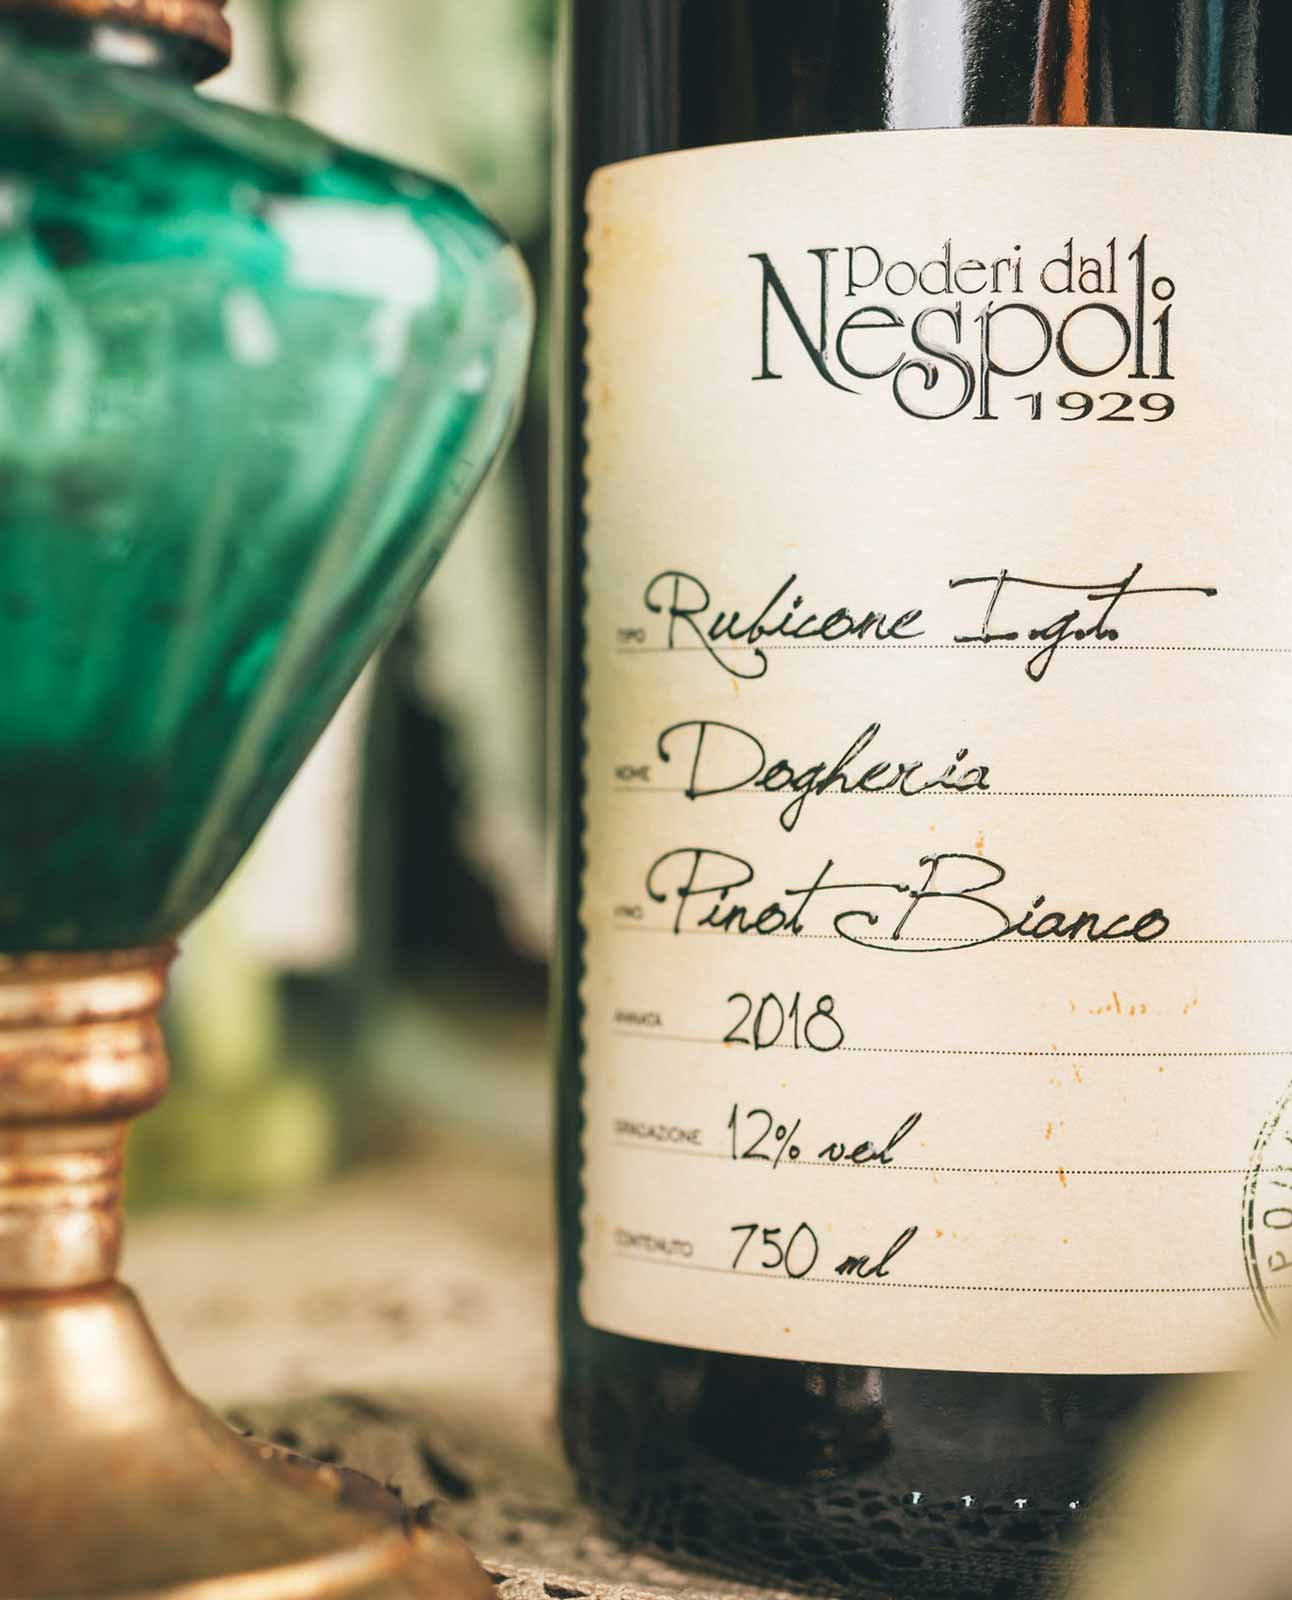 Poderi dal
Nespoli
1929
TIPO Rubicone I.g.t.
NOME Dogheria
VINO Pinot Bianco
ANNATA 2018
GRADAZIONE 12% vol
CONTENUTO 750 ml